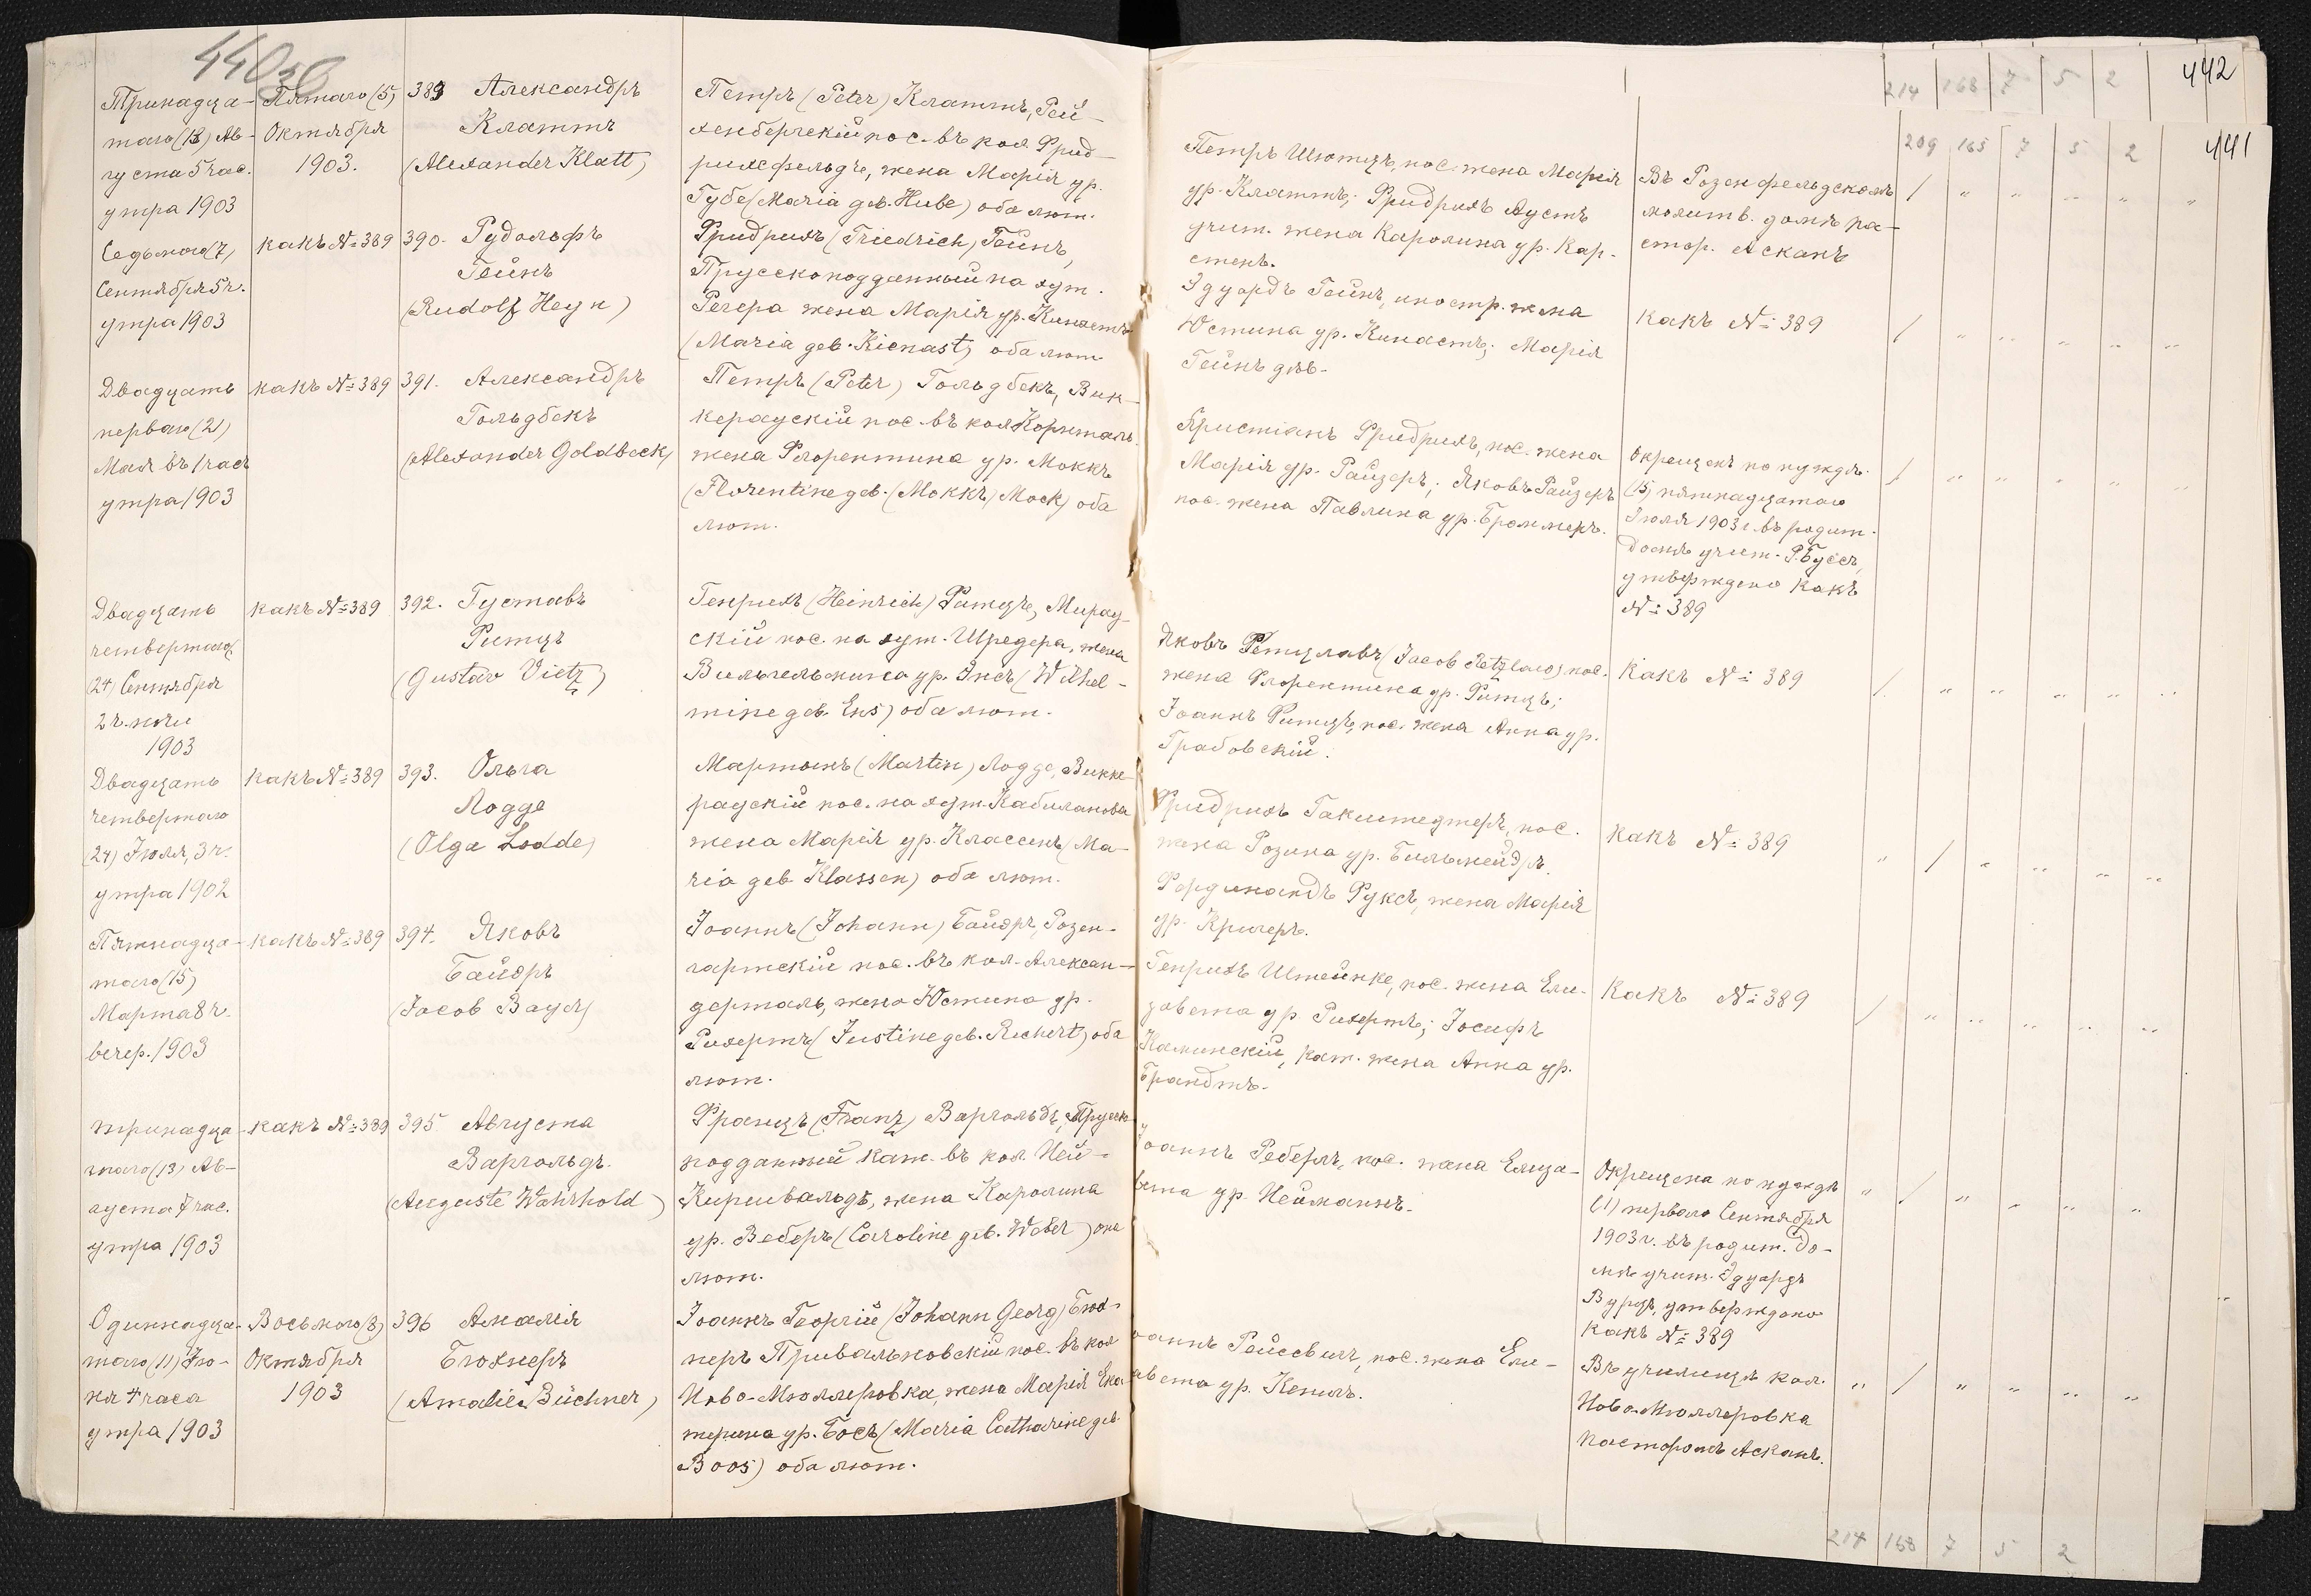 440 об
442
214 168 7 5 2
209 165 7 5 2
441
Тринадца-
таго (13) Ав-
густа 5 час.
утра 1903
Пятаго (5)
Октября
1903.
389 Александръ
Клаттъ
(Alexander Klatt)
Петръ (Peter) Клаттъ, Рей-
хенбергскій пос. въ кол. Фрид-
рихсфельдъ, жена Марія ур.
Губе (Maria geb. Hube) оба лют.
Петръ Шютцъ, пос. жена Марія
ур. Клаттъ; Фридрихъ Аустъ
учит. жена Каролина ур. Кар-
стенъ.
Въ Розенфельдскомъ
молитв. домѣ па-
стор. Асканъ
Седьмого (7)
Сентября 5 ч.
утра 1903
какъ №389
390. Рудольфъ
Гейнъ
(Rudolf Heyn)
Фридрихъ (Friedrich) Гейнъ,
Прусскоподданный на хут.
Регера жена Марія ур. Кинастъ
(Maria geb. Kienast) оба лют.
Эдуардъ Гейнъ, иностр. жена
Юстина ур. Кинастъ; Марія
Гейнъ дѣв.
какъ № 389
Двадцать
перваго (21)
Мая въ 1 час.
утра 1903
какъ №389
391. Александръ
Гольдбекъ
(Alexander Goldbeck)
Петръ (Peter) Гольдбекъ, Вик-
кераускій пос. въ кол Корнталь
жена Флорентина ур. Моккъ
(Florentine geb. (Моккъ) Mock) оба
лют.
Христіанъ Фридрихъ, пос. жена
Марія ур. Райзеръ; Яковъ Райзеръ
пос. жена Павлина ур. Броммеръ.
Окрещенъ по нуждѣ
(15) пятнадцатаго
Іюля 1903 г. въ родит.
домѣ учит. Ф. Буссъ,
утверждено какъ
№ 389
Двадцать
четвертаго
(24) Сентября
2 ч. ночи
1903
какъ №389
392. Густавъ
Фитцъ
(Gustav Vietz)
Генрихъ (Heinrich) Фитцъ, Мирау-
скій пос. на хут. Шредера, жена
Вильгельмина ур. Энсъ (Wilhel-
mine geb. Ens) оба лют.
Яковъ Ретцлавъ (Jacob Retzlaw) пос.
жена Флорентина ур. Фитцъ;
Іоаннъ Фитцъ, пос. жена Анна ур.
Грабовскій.
какъ № 389
Двадцать
четвертаго
(24) Іюля, 3 ч.
утра 1902
какъ №389
393. Ольга
Лодде
(Olga Lodde)
Мартынъ (Martin) Лодде, Викке-
раускій пос. на хут. Кабиланова
жена Марія ур. Классенъ (Ma-
ria geb. Klassen) оба лют.
Фридрихъ Гакштедтеръ, пос.
жена Розина ур. Бильмейдръ.
Фердинандъ Фуксъ, жена Марія
ур. Кригеръ.
какъ № 389
Пятнадца-
таго (15)
Марта 8 ч.
вечер. 1903
какъ №389
394. Яковъ
Байэръ
(Jacob Bayer)
Іоаннъ (Johann) Байэръ, Розен-
гартскій пос. въ кол. Алексан-
дерталь, жена Юстина ур.
Рихертъ (Justine geb. Richert) оба
лют.
Генрихъ Штейнке, пос. жена Ели-
завета ур. Рихертъ; Іосифъ
Каминскій, кат. жена Анна ур.
Брандтъ.
какъ № 389
тринадца-
таго (13) Ав-
густа 7 час.
утра 1903
какъ №389
395 Августа
Варгольдъ.
(Auguste Wahrhold)
Францъ (Franz) Варгольдъ, Прусск.
подданный кат. въ кол. Ней-
Киршвальдъ, жена Каролина
ур. Веберъ (Caroline geb. Weber) она
лют.
Іоаннъ Реберъ, пос. жена Елиза-
вета ур. Нейманнъ.
Окрещена по нуждѣ
(1) перваго Сентября
1903 г. въ родит. до-
мѣ учит. Эдуардъ
Вурцъ, утверждено
какъ № 389
Одиннадца-
таго (11) Ію-
ня 4 часа
утра 1903
Восьмого (8)
Октября
1903
396 Амалія
Бюхнеръ
(Amalie Büchner)
Іоаннъ Георгій (Johann Georg) Бюх-
неръ Привальковскій пос. въ кол
Ново-Мюллеровка, жена Марія Ека-
терина ур. Боосъ (Maria Catharine geb.
Boos) оба лют.
оаннъ Рейсвихъ, пос. жена Ели-
авета ур. Кениг.
Въ училищѣ кол.
Ново-Мюллеровка
пасторомъ Асканъ.
214 168 7 5 2